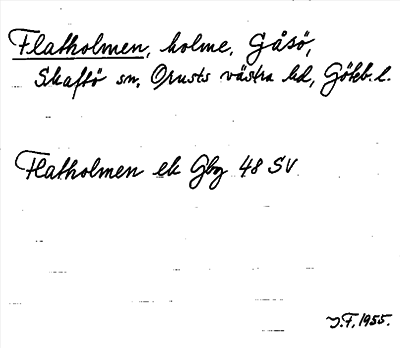 Flatholmen, holme, Gåsö,
Skaftö sn, Orusts västra hd, Göteb. l.
Flatholmen ek Gbg 48 SV
J.F. 1955.